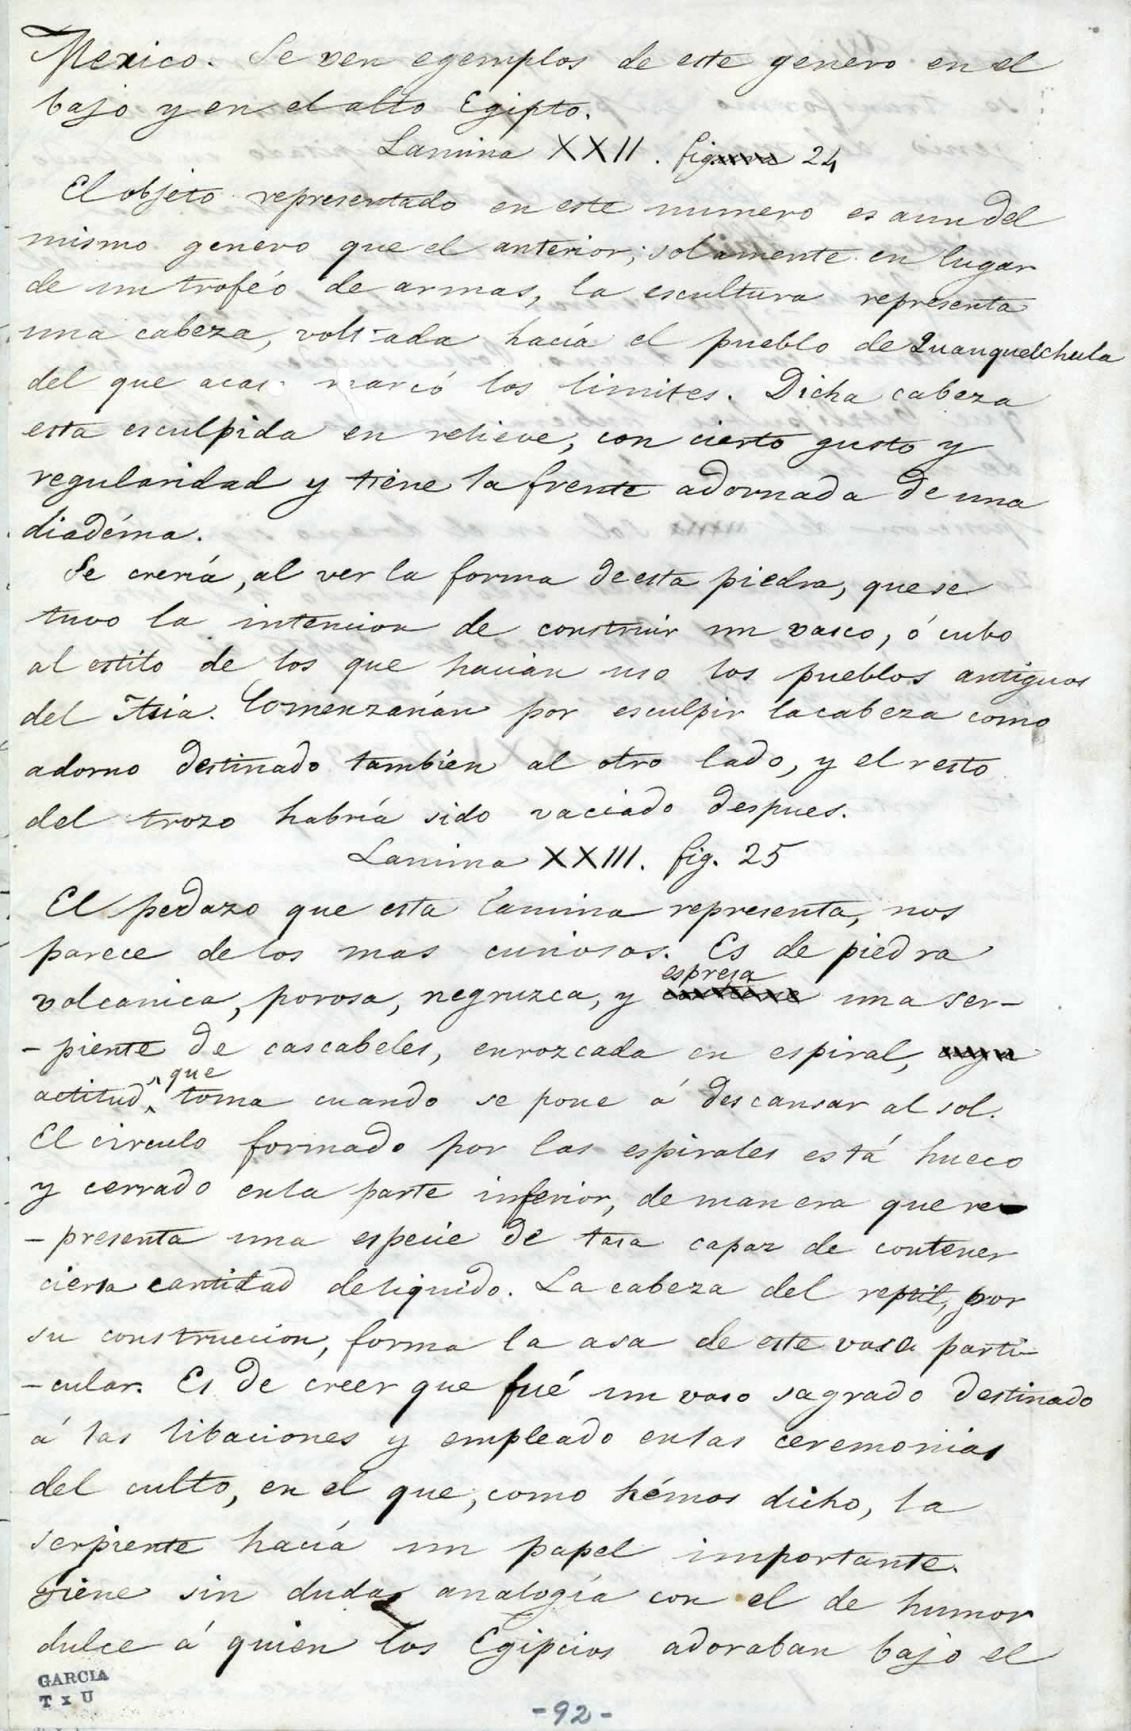 Mexico. Se ven egemplos de este genero en el
bajo y en el alto Egipto.
Lamina XXII. fig 24
El objeto representado en este numero es aun del
mismo genero que el anterior; solamente en lugar
de un troféo de armas, la escultura representa
una cabeza, volteada hacía el pueblo de Quauquelchula
del que acas marcó los limites. Dicha cabeza
esta esculpida en relieve, con cierto gusto y
regularidad y tiene la frente adornada de una
diadéma.
Se crería, al ver la forma de esta piedra, que se
tuvo la intencion de construir un vasco, ó cubo
al estilo de los que hacian uso los pueblos antiguos
del Asia. Comenzarán por esculpir la cabeza como
adorno destinado tambien al otro lado, y el resto
del trozo habría sido vaciado despues.
Lamina XXIII. fig. 25
El pedazo que esta lamina representa, nos
parece de los mas curiosos. Es de piedra
volcanica, porosa, negruzca, y espresa una ser-
-piente de cascabeles, enrozcada en espiral,
actitud que toma cuando se pone á descansar al sol.
El circulo formado por las espirales está hueco
y cerrado en la parte inferior, de manera que re
-presenta una especie de tasa capaz de contener
cierta cantidad de liquido. La cabeza del reptil, por
su construccion, forma la asa de este vaso parti-
-cular. Es de creer que fué un vaso sagrado destinado
á las libaciones y empleado en las ceremonias
del culto, en el que, como hémos dicho, la
serpiente hacía un papel importante.
Tiene sin duda analogía con el de humor
dulce á quien los Egipcios adoraban bajo el
GARCIA
T x U
-92-